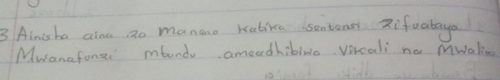 3 Ainisha aina za maneno katika sentensi zifuatayo
Mwanafunzi mtundu ameadhibiwa vikali na Mwalimu